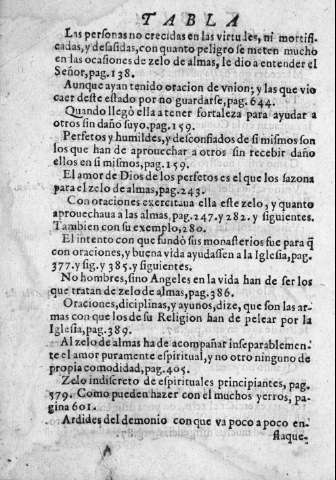 TABLA
Las personas no crecidas en las virtudes, ni mortifi-
cadas, y desasidas, con quanto peligro se meten mucho
en las ocasiones de zelo de almas, le dio a entender el
Señor, pag. 138.
Aunque ayan tenido oracion de vnion; y las que vio
caer deste estado por no guardarse, pag. 644.
Quando llegò ella a tener fortaleza para ayudar a
otros sin daño suyo. pag. 159.
Perfetos y humildes, y desconfiados de si mismos son
los que han de aprouechar a otros sin recebir daño
ellos en si mismos, pag. 159.
El amor de Dios de los perfetos es el que los sazona
para el zelo de almas, pag. 243.
Con oraciones exercitaua ella este zelo; y quanto
aprouechaua a las almas, pag. 247. y 282. y siguientes.
Tambien con su exemplo, 280.
El intento con que fundó sus monasterios fue para q̃
con oraciones, y buena vida ayudassen a la Iglesia, pag.
377. y sig. y 385. y siguientes.
No hombres, sino Angeles en la vida han de ser los
que tratan de zelo de almas, pag. 386.
Oraciones, diciplinas, y ayunos, dize, que son las ar-
mas con que los de su Religion han de pelear por la
Iglesia, pag. 389.
Al zelo de almas ha de acompañar inseparablemen-
te el amor puramente espiritual, y no otro ninguno de
propia comodidad, pag. 405.
Zelo indiscreto de espirituales principiantes, pag.
579. Como pueden hazer con el muchos yerros, pa-
gina 601.
Ardides del demonio con que va poco a poco en-
flaque-